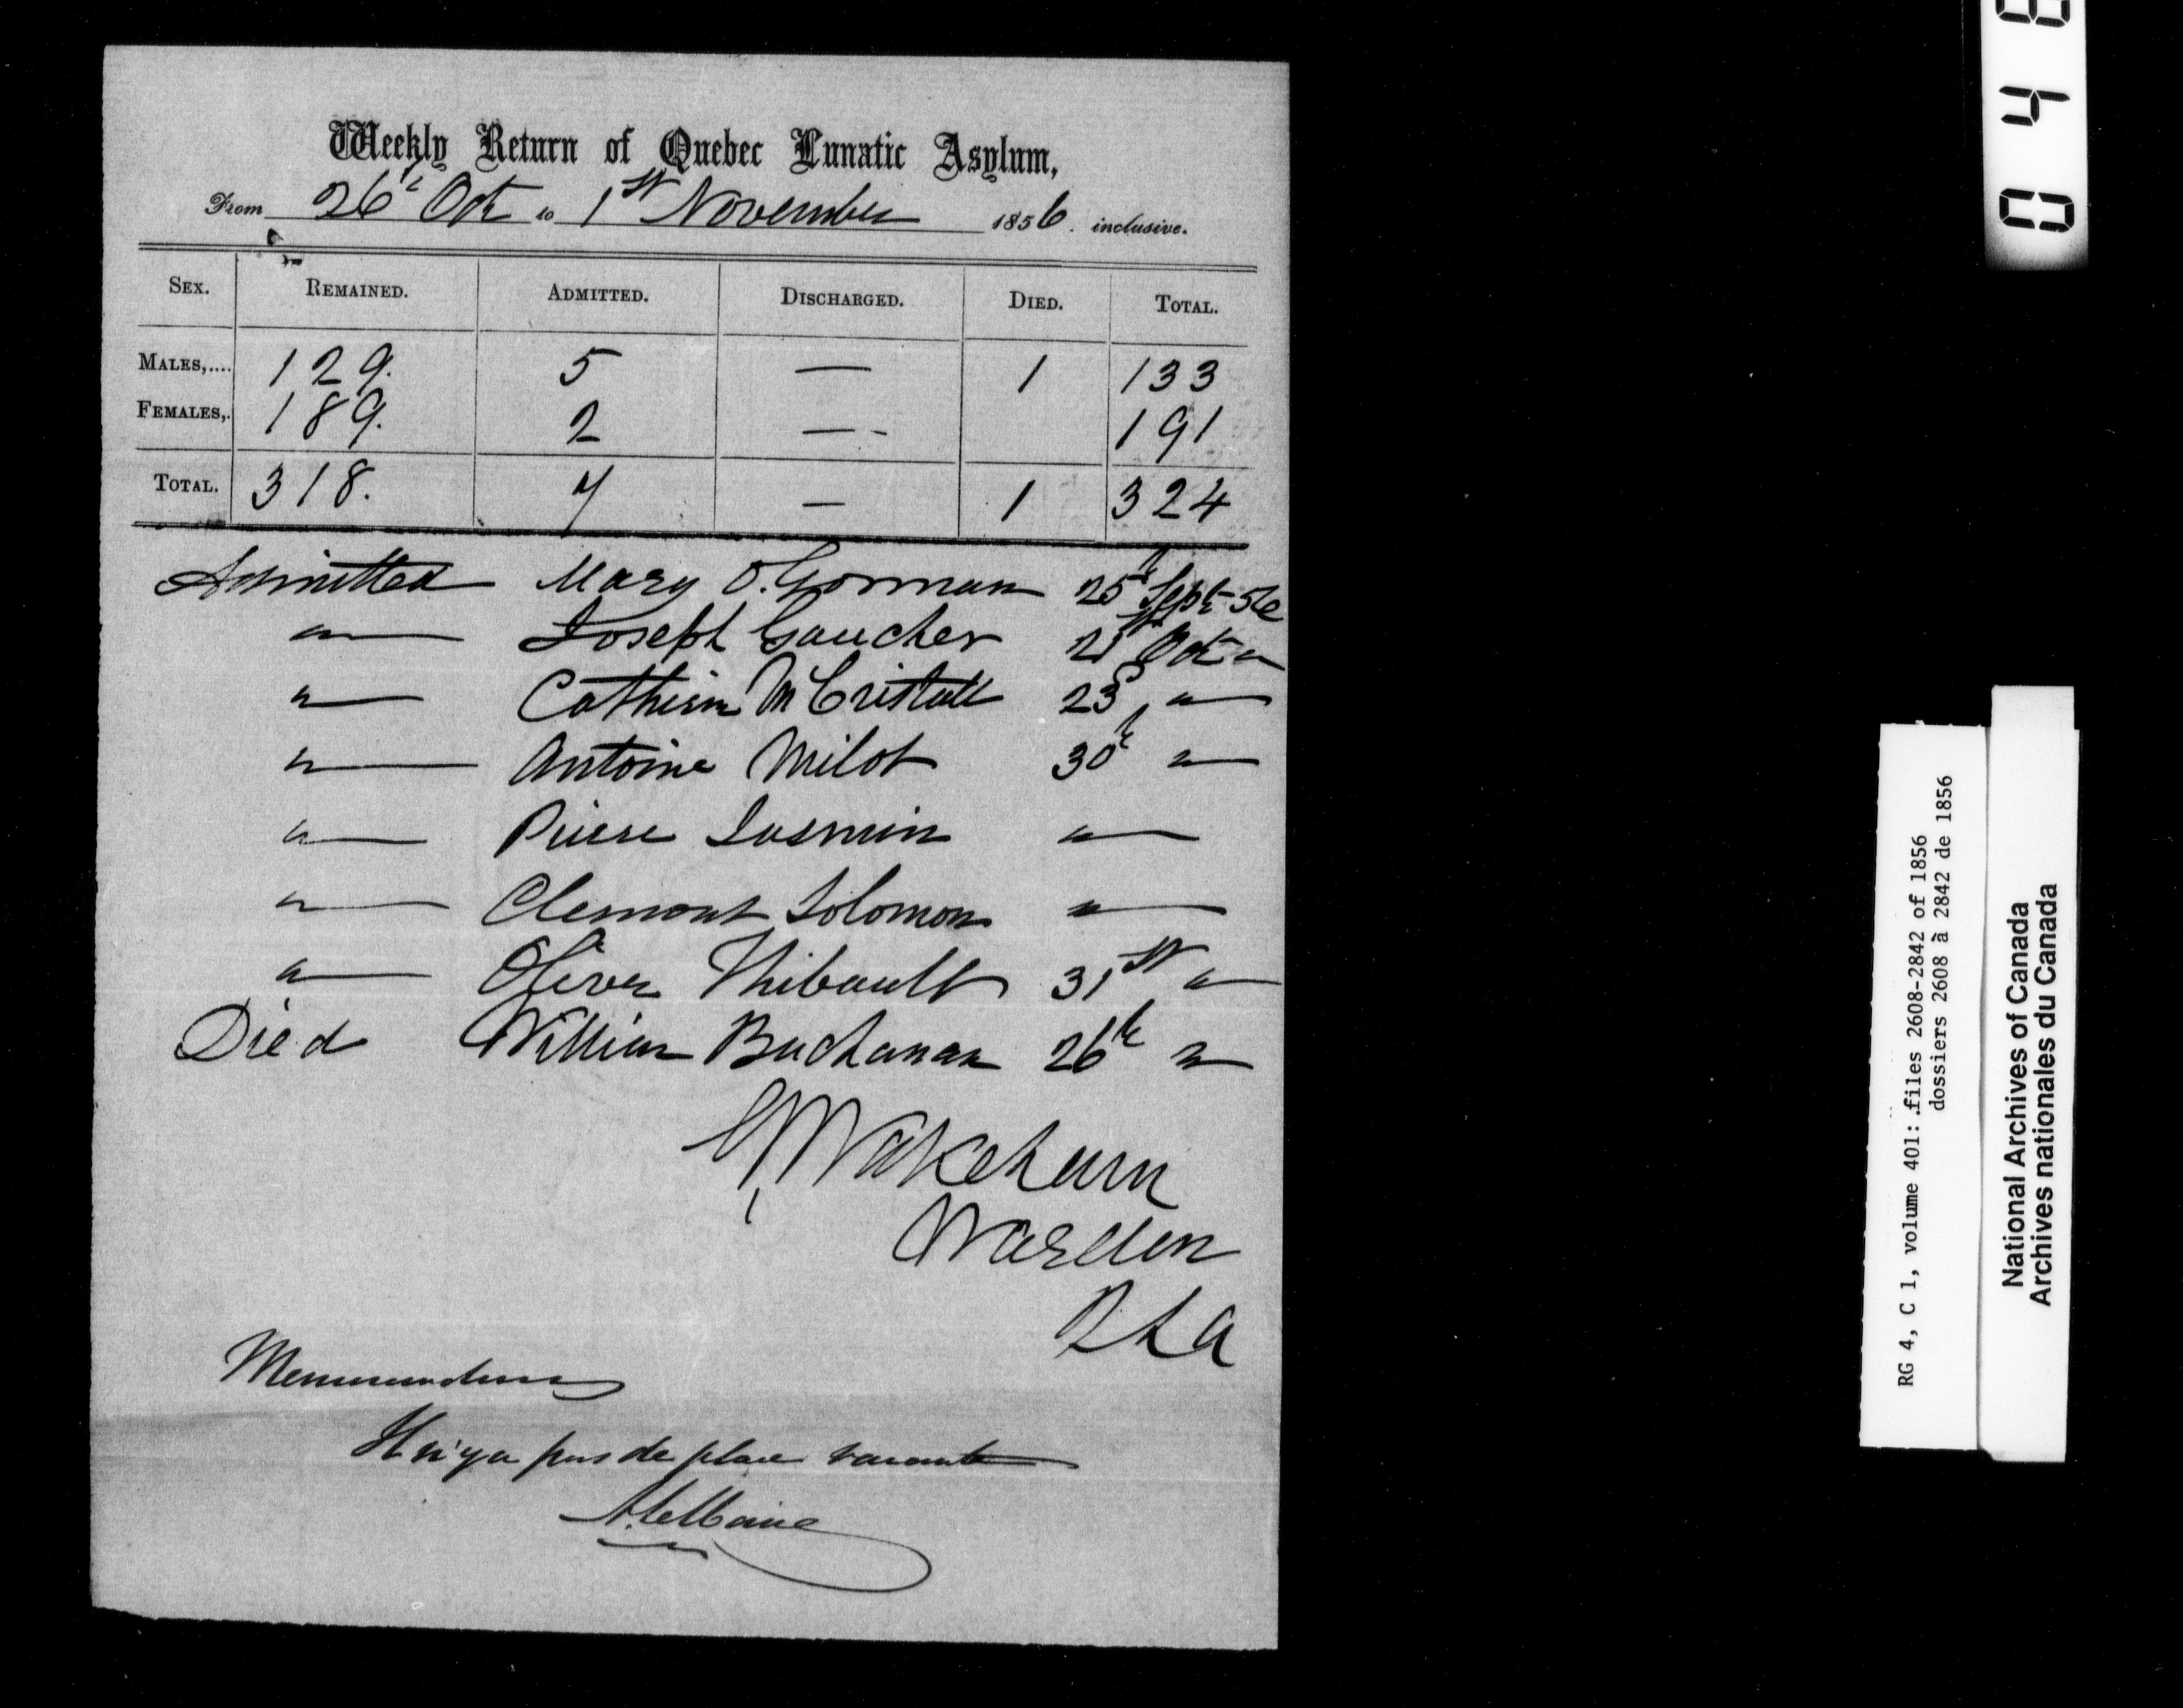 Weekly Return of Quebec Lunatic Asylum,
From 26th Oct to 1st November 1856. inclusive.
SEX. REMAINED. ADMITTED. DISCHARGED. DIED. TOTAL.
MALES,.... 129. 5 — 1 133
FEMALES,. 189. 2 — 191
TOTAL. 318. 7 — 1 324
Admitted Mary O.Gorman 25th Sept 56
" Joseph Gaucher 21st Oct "
" Catherin McCristall 23d "
" Antoine Milot 30th "
" Pierre Jasmin "
" Clemont Solomon "
" Oliver Thibault 31st "
Died William Buchanan 26th "
Wakeham
Warden
Memorandum
Il n'y a pas de place vacante
0 4 8
RG 4, C 1, volume 401: files 2608-2842 of 1856
dossiers 2608 à 2842 de 1856
National Archives of Canada
Archives nationales du Canada